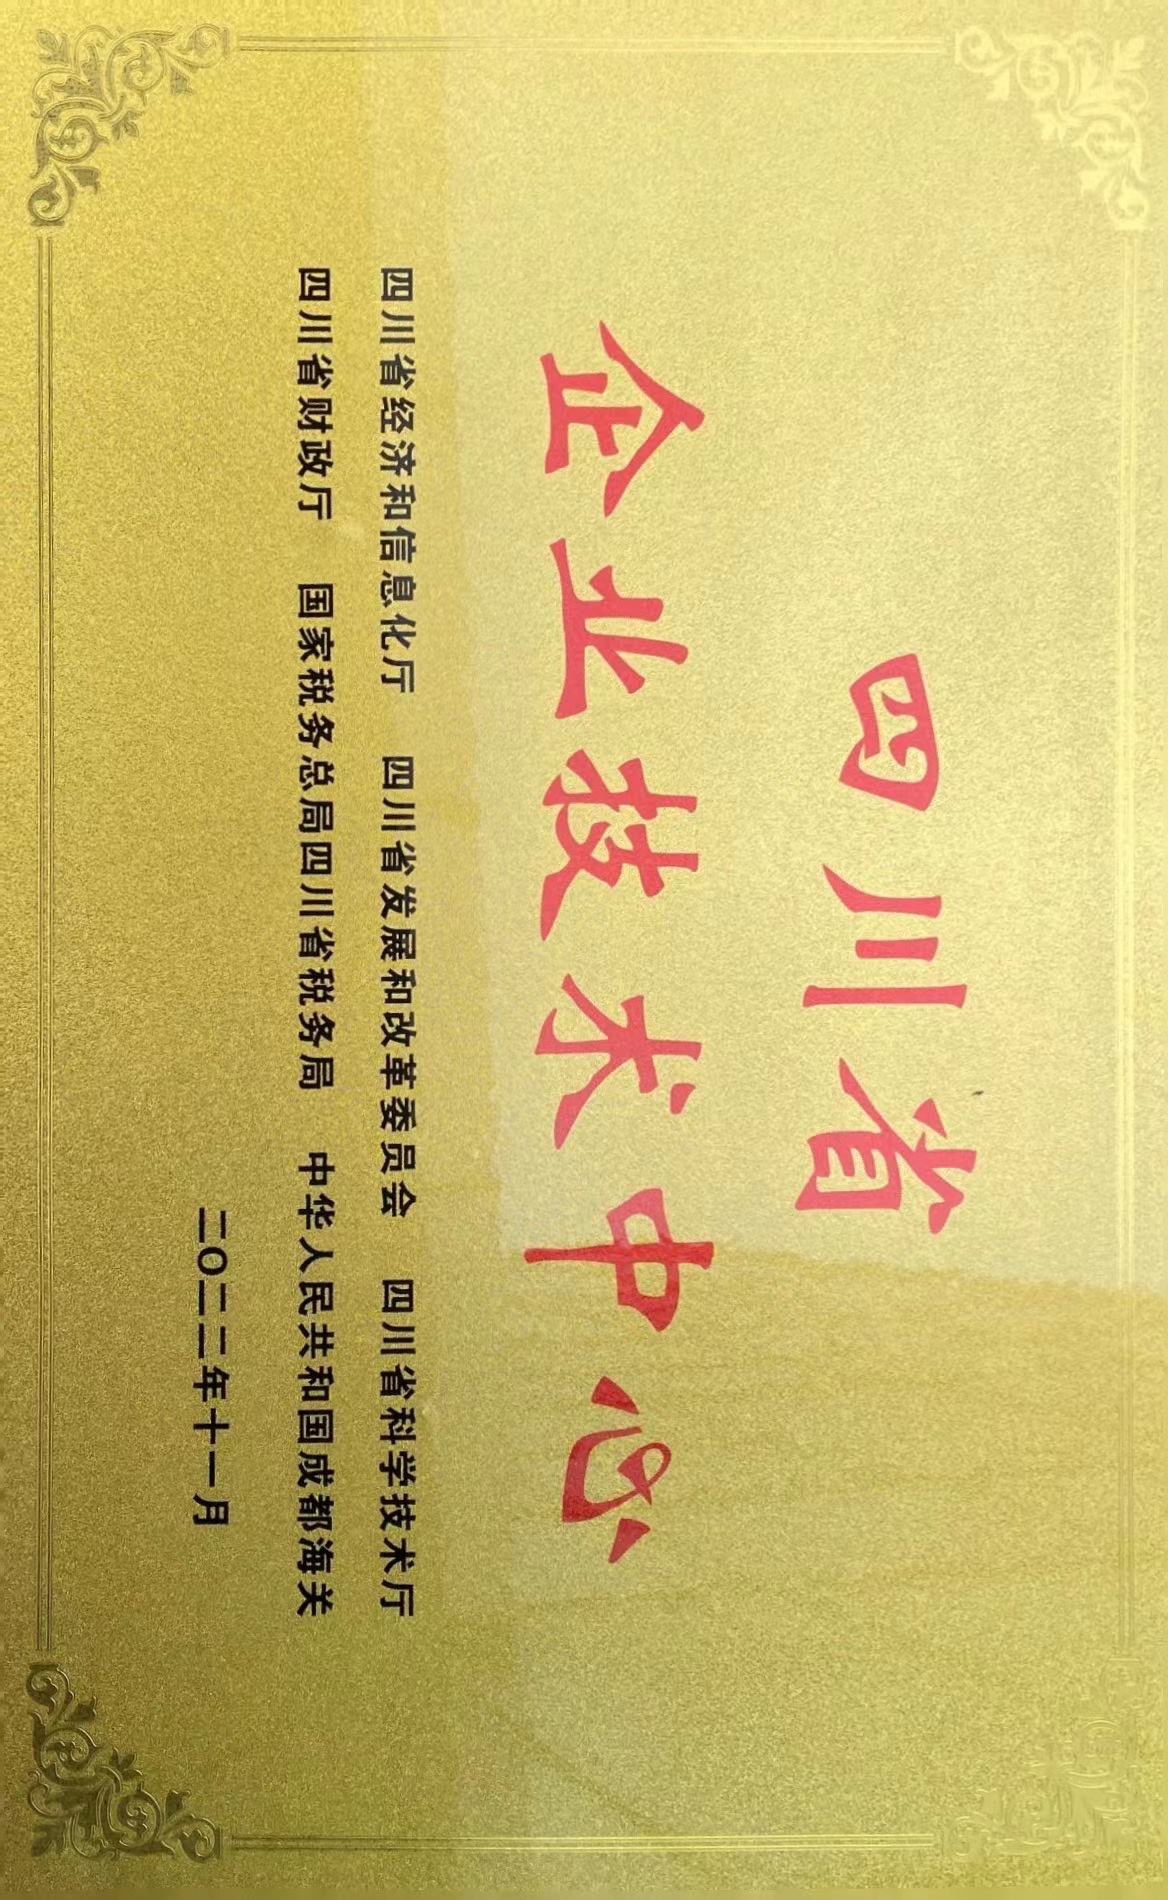 四川省
企业技术中心
四川省经济和信息化厅 四川省发展和改革委员会 四川省科学技术厅
四川省财政厅 国家税务总局四川省税务局 中华人民共和国成都海关
二〇二二年十一月